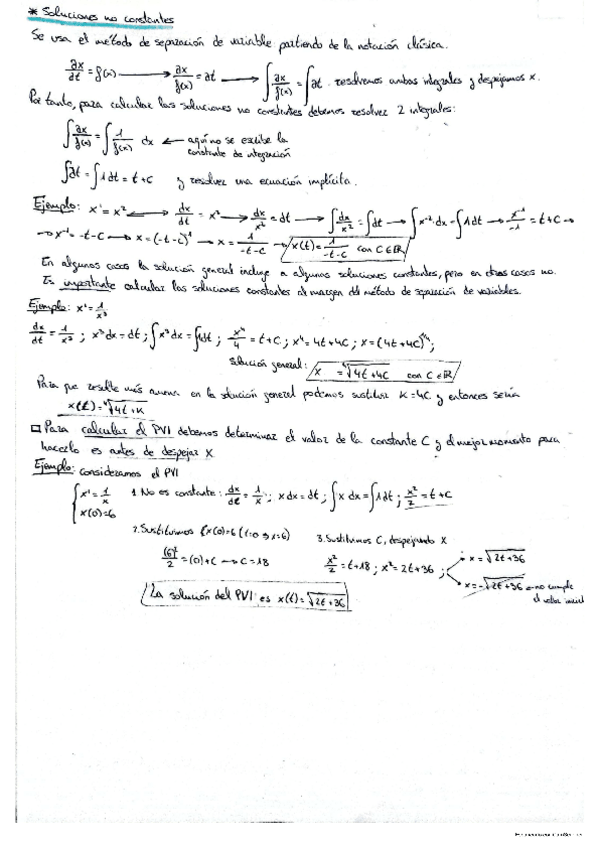 * Soluciones no constantes
Se usa el método de separación de variable partiendo de la notación clásica.
∂x/∂t = f(x) → ∂x/f(x) = ∂t → ∫ ∂x/f(x) = ∫ ∂t. resolvemos ambas integrales y despejamos x.
Por tanto, para calcular las soluciones no constantes debemos resolver 2 integrales:
∫ ∂x/f(x) = ∫ 1/f(x) dx ← aquí no se escribe la
constante de integración
∫∂t = ∫1dt = t + C y resolver una ecuación implícita.
Ejemplo: x' = x² → dx/dt = x² → dx/x² = dt → ∫ dx/x² = ∫ dt → ∫ x⁻² dx = ∫ 1dt → x⁻¹/-1 = t + C →
→ x⁻¹ = -t - C → x = (-t - C)⁻¹ → x = 1/-t-C → x(t) = 1/-t-C con C∈ℝ
En algunos casos la solución general incluye a algunas soluciones constantes, pero en otros casos no.
Es importante calcular las soluciones constantes al margen del método de separación de variables.
Ejemplo: x' = 1/x³
dx/dt = 1/x³ ; x³ dx = dt ; ∫ x³ dx = ∫ 1dt ; x⁴/4 = t + C ; x⁴ = 4t + 4C ; x = (4t + 4C)^1/4 ;
Solución general: x = ⁴√4t + 4C con C∈ℝ
Para que resulte más amena en la solución general podemos sustituir K = 4C y entonces sería
x(t) = ⁴√4t + K
□ Para calcular el PVI debemos determinar el valor de la constante C y el mejor momento para
hacerlo es antes de despejar X
Ejemplo: consideramos el PVI
{ x' = 1/x 1. No es constante: dx/dt = 1/x ; x dx = dt ; ∫ x dx = ∫ 1dt ; x²/2 = t + C
x(0) = 6
2. Sustituimos x(0) = 6 (t=0 → x=6) 3. Sustituimos C, despejando X
(6)²/2 = (0) + C → C = 18 x²/2 = t + 18 ; x² = 2t + 36 ; x = √2t + 36
x = -√2t + 36 ← no cumple
el valor inicial
La solución del PVI es x(t) = √2t + 36